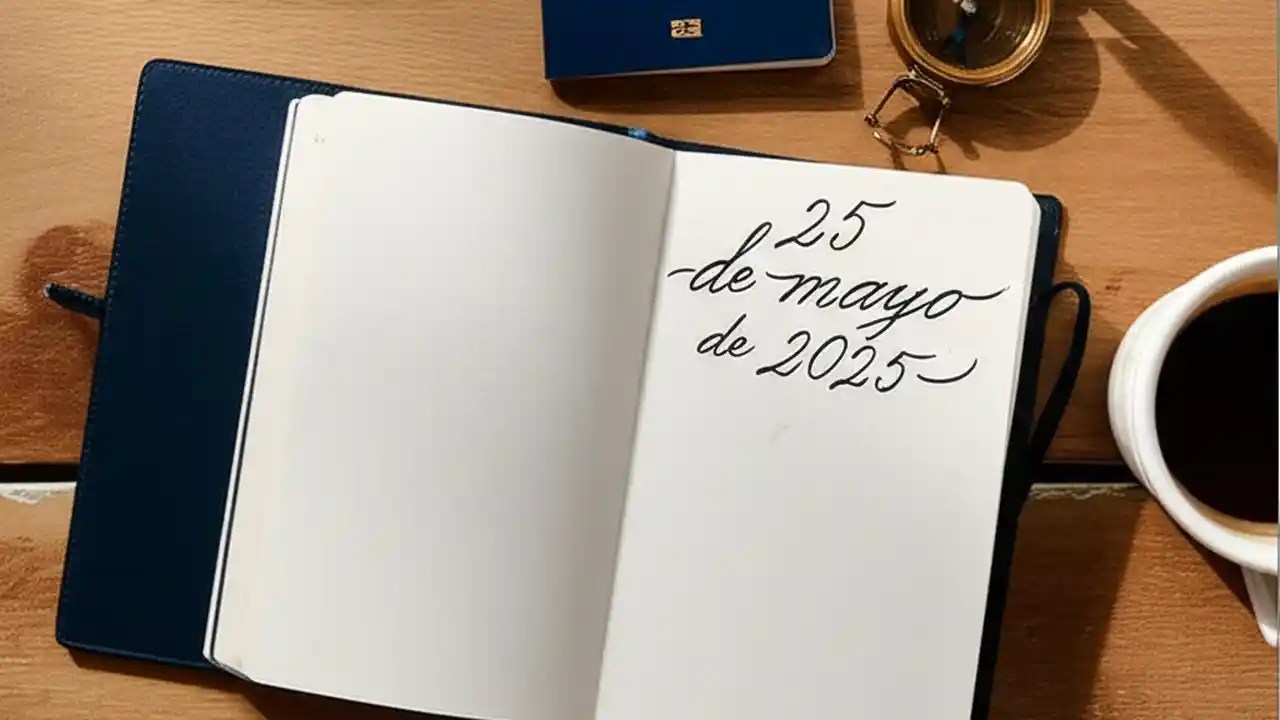 25
de mayo
de 2025